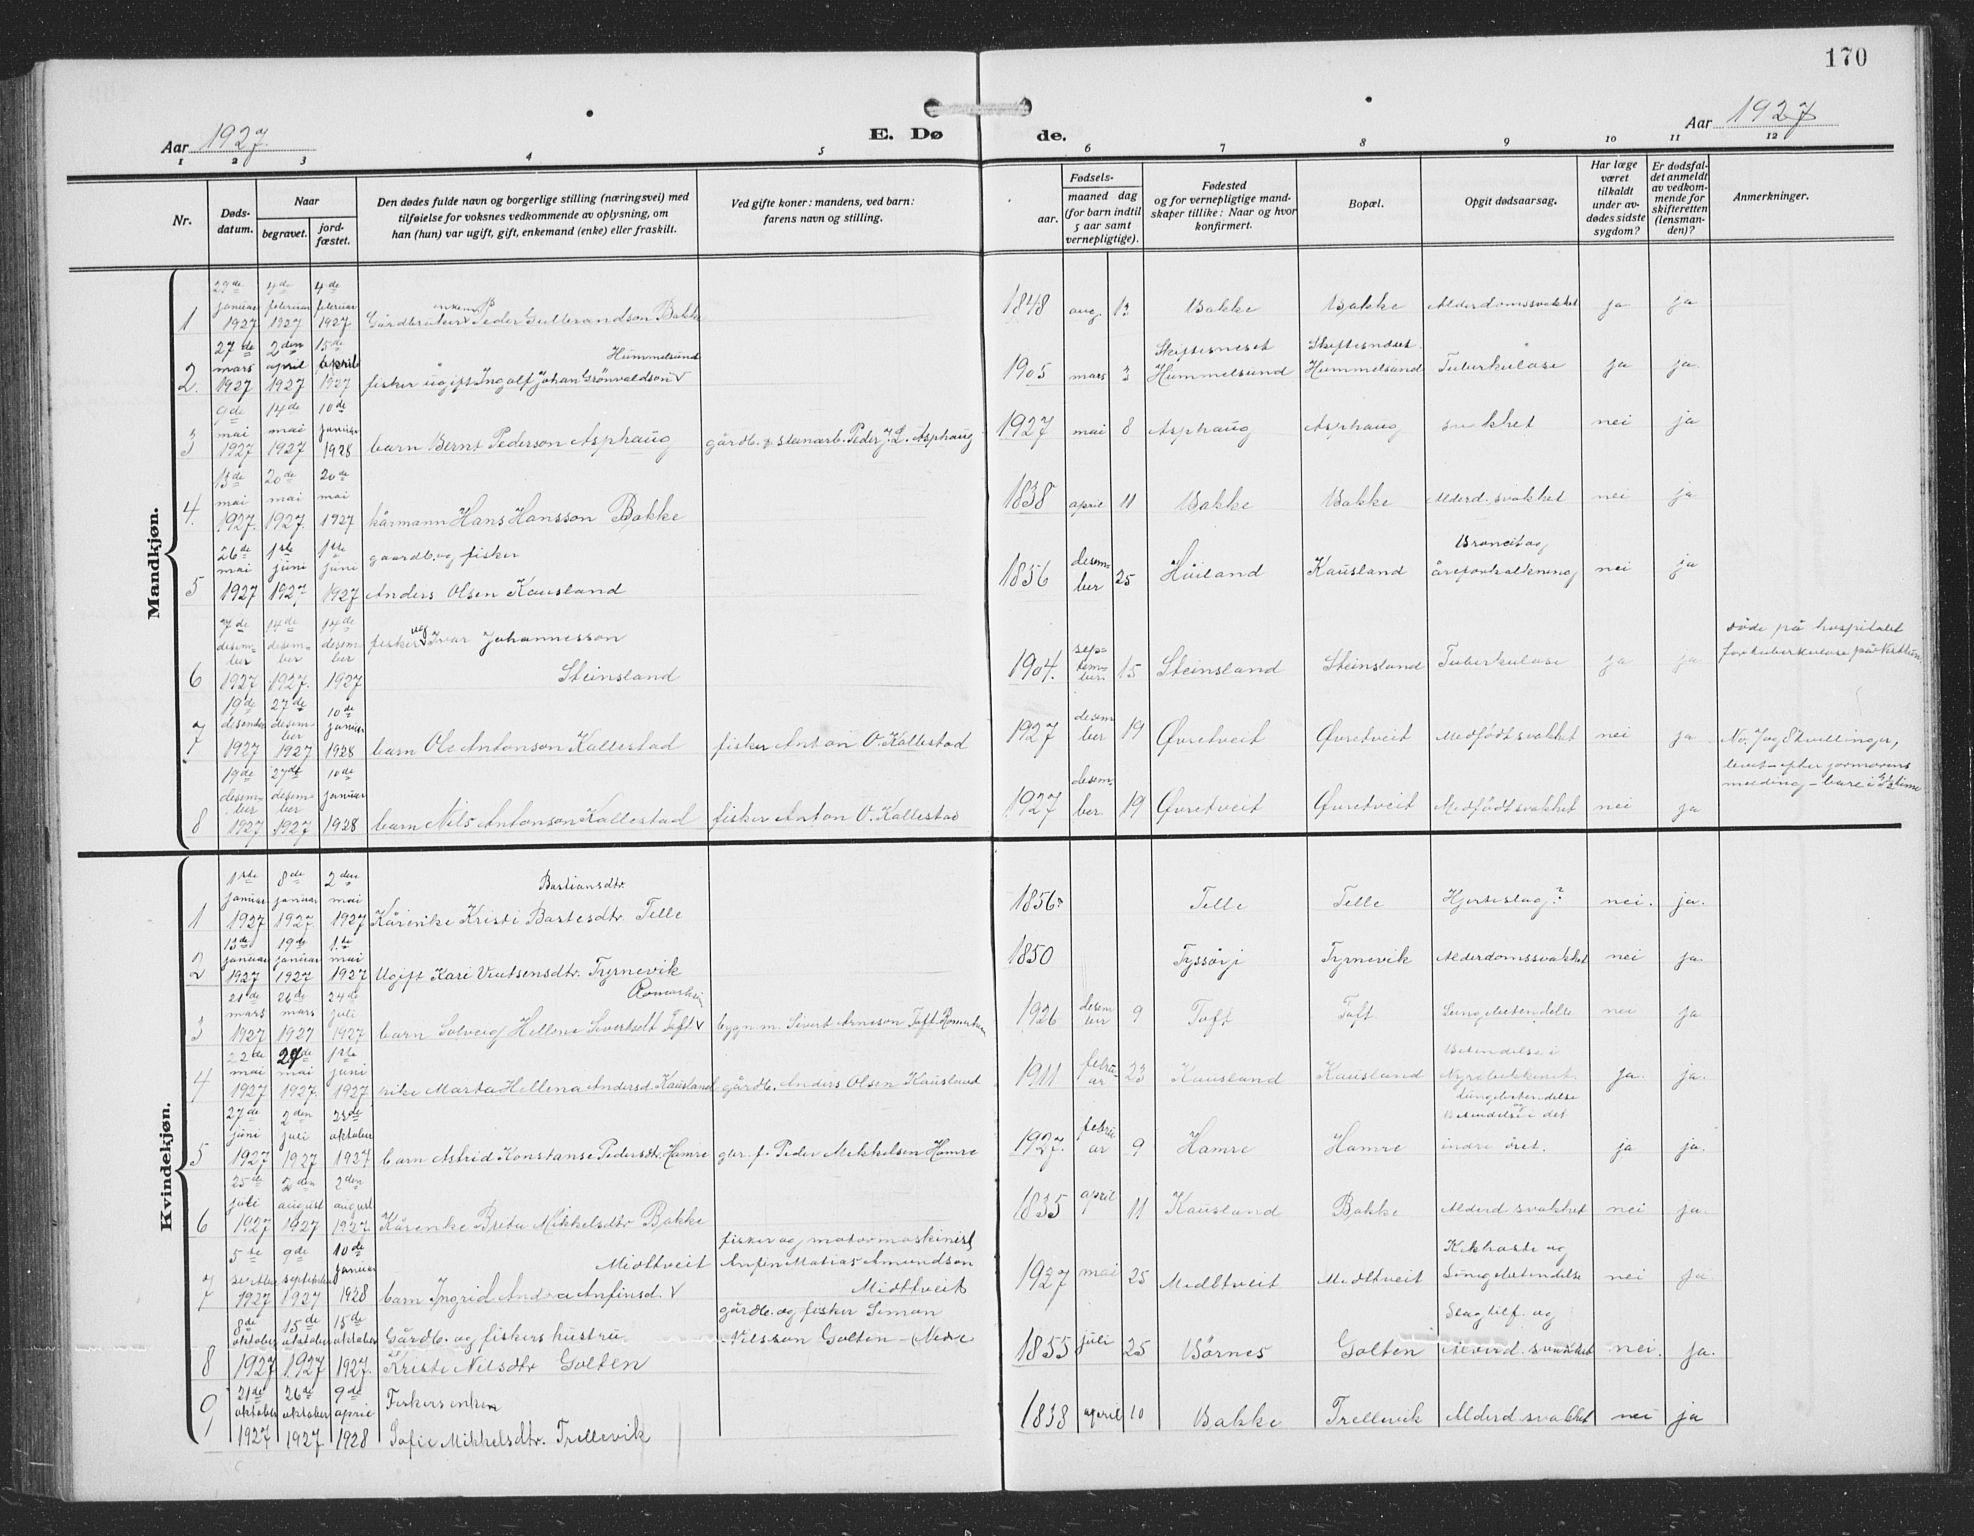 170
Aar 1927.
E. Døde.
Aar 1927
1 2 3 4 5 6 7 8 9 10 11 12
Nr.
Døds-datum.
Naar
begravet.
jord-fæstet.
Den dødes fulde navn og borgerlige stilling (næringsvei) med
tilføielse for voksnes vedkommende av oplysning, om
han (hun) var ugift, gift, enkemand (enke) eller fraskilt.
Ved gifte koner: mandens, ved barn:
farens navn og stilling.
Fødsels-
aar.
maaned dag
(for barn indtil
5 aar samt
vernepligtige).
Fødested
og for vernepligtige mand-
skaper tillike: Naar og hvor
konfirmert.
Bopæl.
Opgit dødsaarsag.
Har læge
været
tilkaldt
under av-
dødes sidste
sygdom?
Er dødsfal-
det anmeldt
av vedkom-
mende for
skifteretten
(lensman-
den)?
Anmerkninger.
Mandkjøn.
1 29de januar 1927 4de februar 1927 4de februar 1927 Gårdbruker enkem. Peder Gulbrandson Bakke 1848 aug. 13 Bakke Bakke Alderdomssvakhet ja ja
2. 27de mars 1927 2den april 1927 15de april 1927 fisker ugift Ingolf Johan Grönvaldson Hummelsund 1905 mars 3 Skiftesneset Hummelsund Skiftesneset Hummelsund Tuberkulose ja ja.
3 9de mai 1927 14de mai 1927 10de januar 1928 barn Bernt Pederson Asphaug gårdb. og stenarb. Peder J. L. Asphaug 1927 mai 8 Asphaug Asphaug svakhet nei ja
4. 13de mai 1927. 20de mai 1927. 20de mai 1927 kårmann Hans Hansson Bakke 1838 april 11 Bakke Bakke Alderd. svakhet nei ja
5 26de mai 1927 1ste juni 1927 1ste juni 1927 gaardb. og fisker
Anders Olsen Kausland 1856 desember 25 Huiland Kausland Broncit og åreforkalkning nei ja
6 7de desember 1927 14de desember 1927. 14de desember 1927 fisker ug Ivar Johannesson
Steinsland 1904. september 15 Steinsland Steinsland Tuberkulose ja ja. døde på hospitalet
for tuberkulose på Nesttun
7 19de desember 1927 27de desember 1927 10de januar 1928 barn Ole Antonson Kallestad fisker Anton O. Kallestad 1927 desember 19 Øvretveit Øvretveit Medfödt svakhet nei ja No. 7 og 8 tvillinger,
levet – efter jormorens
melding – bare i 1/2 time
8 19de desember 1927 27de desember 1927 10de januar 1928 barn Nils Antonson Kallestad fisker Anton O. Kallestad 1927 desember 19 Øvretveit Øvretveit Medfödt svakhet nei ja
Kvindekjøn.
1 1ste januar 1927 8de januar 1927. 2den mai 1927 Kårenke Kristi Bastesdtr. Telle Bastiansdtr. 1856? Telle Telle Hjerteslag? nei. ja.
2 13de januar 1927 19de januar 1927 1ste mai 1927 Ugift Kari Vintsensdtr. Tyrnevik 1850 Tyssöy Tyrnevik Alderdomssvakhet nei ja.
3 21de mars 1927 26de mars 1927 24de juli 1927 barn Solveig Hellene Sivertsdt Toft Romarheim bygn. m. Sivert Arneson Toft Romarheim 1926 desember 9 Toft Toft Lungebetendelse nei ja
4 22de mai 1927 29de mai 1927. 1ste juni 1927 pike Marta Hellena Andersd. Kausland gårdb. Anders Olsen Kausland 1911 februar 23 Kausland Kausland Betendelse i Nyrebekkenet. ja. ja.
5 27de juni 1927 2den juli 1927 23de oktober 1927 barn Astrid Konstanse Pedersdtr. Hamre gbr. f. Peder Mikkelsen Hamre 1927. februar 9 Hamre Hamre Lungebetendelse og Betendelse i det indre öret. ja ja.
6 25de juli 1927 2den august 1927 2den august 1927 Kårenke Brita Mikkelsdtr Bakke 1835 april 11 Kausland Bakke Alderd. svakhet nei ja.
7 5te september 1927 9de september 1927 10de januar 1928 barn Ingrid Andrea Anfinsd. Midttveit fisker og motormaskinist
Anfin Matias Amundson
Midttveit 1927 mai 25 Midttveit Midttveit Kikhoste og Lungebetendelse nei ja.
8 8de oktober 1927 15de oktober 1927 15de oktober 1927. Gårdb. og fiskers hustru
Kristi Nilsdtr Golten gårdb. og fisker Simon
Nilsson Golten – Nedre 1855 juli 25 Börnes Golten Slagtilf. og alderd. svakhet nei. ja.
9 21de oktober 1927 26de oktober 1927 9de april 1928 Fiskersenken
Sofie Mikkelsdtr. Trellevik 1838 april 10 Bakke Trellevik Alderd. svakhet nei ja